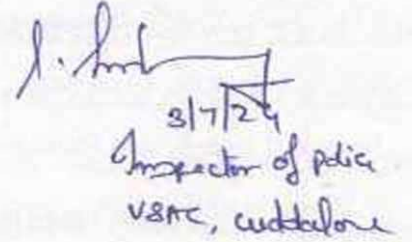 3/7/24
Inspector of police
V&AC, cuddalore